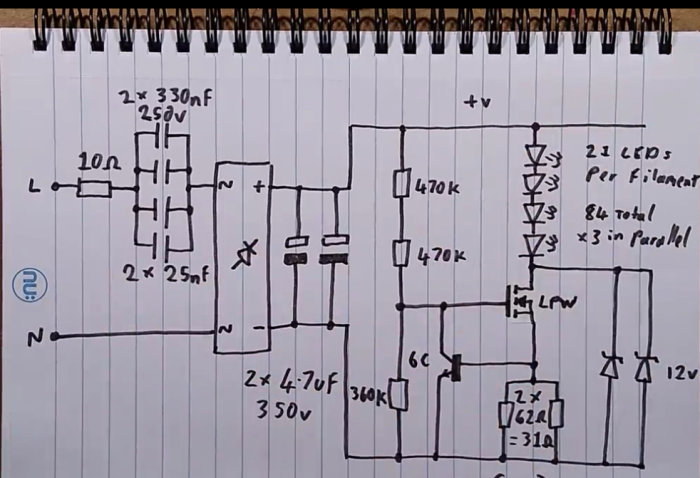 2 x 330nF
250v
+v
10Ω
L
~
+
2 x 25nF
470k
470k
21 LEDs
Per Filament
84 Total
x3 in Parallel
LPW
N
~
−
2 x 4.7uF
350v
360k
6C
2 x
62Ω
=31Ω
12v